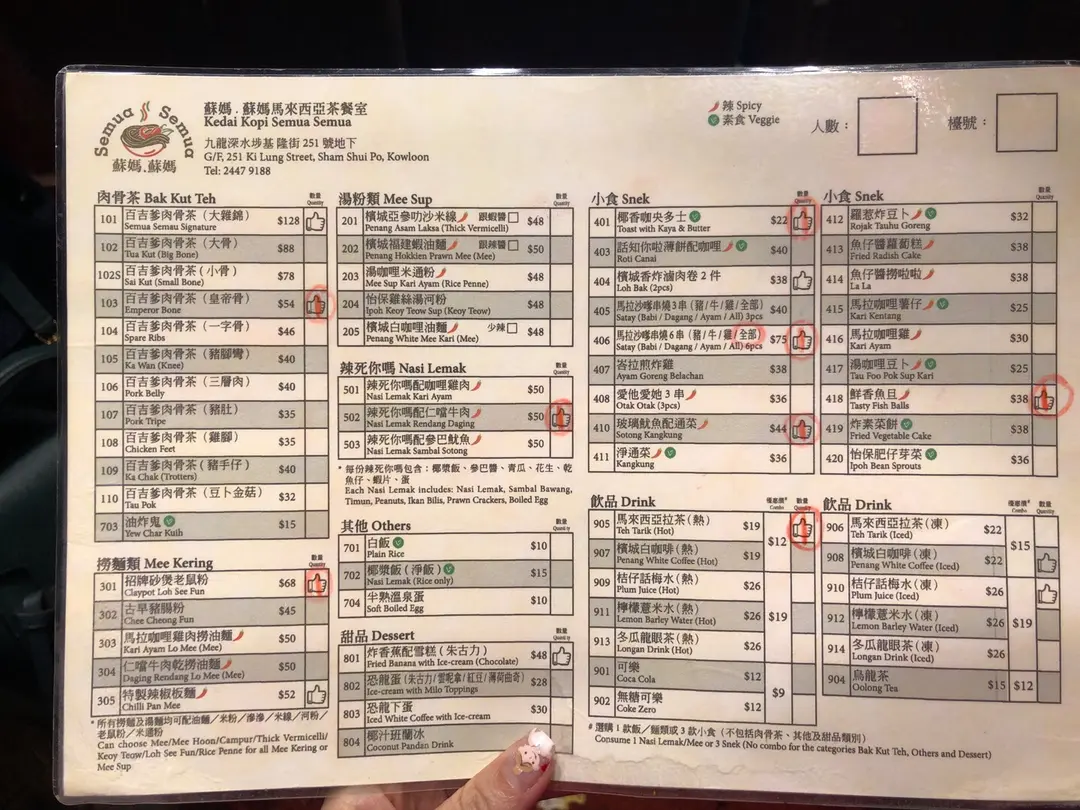 Semua Semua
蘇媽.蘇媽
蘇媽.蘇媽馬來西亞茶餐室
Kedai Kopi Semua Semua
九龍深水埗基隆街 251 號地下
G/F, 251 Ki Lung Street, Sham Shui Po, Kowloon
Tel: 2447 9188
辣 Spicy
素食 Veggie
人數：
檯號：
肉骨茶 Bak Kut Teh
數量
Quantity
101 百吉爹肉骨茶（大雜錦） $128
Semua Semua Signature
102 百吉爹肉骨茶（大骨） $88
Tua Kut (Big Bone)
102S 百吉爹肉骨茶（小骨） $78
Sai Kut (Small Bone)
103 百吉爹肉骨茶（皇帝骨） $54
Emperor Bone
104 百吉爹肉骨茶（一字骨） $46
Spare Ribs
105 百吉爹肉骨茶（豬腳彎） $40
Ka Wan (Knee)
106 百吉爹肉骨茶（三層肉） $40
Pork Belly
107 百吉爹肉骨茶（豬肚） $35
Pork Tripe
108 百吉爹肉骨茶（雞腳） $35
Chicken Feet
109 百吉爹肉骨茶（豬手仔） $40
Ka Chak (Trotters)
110 百吉爹肉骨茶（豆卜金菇） $32
Tau Pok
703 油炸鬼 $15
Yew Char Kuih
撈麵類 Mee Kering
數量
Quantity
301 招牌砂煲老鼠粉 $68
Claypot Loh See Fun
302 古早豬腸粉 $45
Chee Cheong Fun
303 馬拉咖哩雞肉撈油麵 $50
Kari Ayam Lo Mee (Mee)
304 仁噹牛肉乾撈油麵 $50
Daging Rendang Lo Mee (Mee)
305 特製辣椒板麵 $52
Chilli Pan Mee
*所有撈麵及湯麵均可配油麵／米粉／滲滲／米線／河粉／
老鼠粉／米通粉
Can choose Mee/Mee Hoon/Campur/Thick Vermicelli/
Keoy Teow/Loh See Fun/Rice Penne for all Mee Kering or
Mee Sup
湯粉類 Mee Sup
數量
Quantity
201 檳城亞參叻沙米線 跟蝦醬 $48
Penang Asam Laksa (Thick Vermicelli)
202 檳城福建蝦油麵 跟辣醬 $50
Penang Hokkien Prawn Mee (Mee)
203 湯咖哩米通粉 $48
Mee Sup Kari Ayam (Rice Penne)
204 怡保雞絲湯河粉 $48
Ipoh Keoy Teow Sup (Keoy Teow)
205 檳城白咖哩油麵 少辣 $48
Penang White Mee Kari (Mee)
辣死你嗎 Nasi Lemak
數量
Quantity
501 辣死你嗎配咖哩雞肉 $50
Nasi Lemak Kari Ayam
502 辣死你嗎配仁噹牛肉 $50
Nasi Lemak Rendang Daging
503 辣死你嗎配參巴魷魚 $50
Nasi Lemak Sambal Sotong
*每份辣死你嗎包含：椰漿飯、參巴醬、青瓜、花生、乾
魚仔、蝦片、蛋
Each Nasi Lemak includes: Nasi Lemak, Sambal Bawang,
Timun, Peanuts, Ikan Bilis, Prawn Crackers, Boiled Egg
其他 Others
數量
Quantity
701 白飯 $10
Plain Rice
702 椰漿飯（淨飯） $15
Nasi Lemak (Rice only)
704 半熟溫泉蛋 $10
Soft Boiled Egg
甜品 Dessert
數量
Quantity
801 炸香蕉配雪糕（朱古力） $48
Fried Banana with Ice-cream (Chocolate)
802 恐龍蛋（朱古力/雲呢拿/紅豆/薄荷曲奇） $28
Ice-cream with Milo Toppings
803 恐龍下蛋 $30
Iced White Coffee with Ice-cream
804 椰汁班蘭冰
Coconut Pandan Drink
小食 Snek
數量
Quantity
401 椰香咖央多士 $22
Toast with Kaya & Butter
403 話知你啦薄餅配咖哩 $40
Roti Canai
404 檳城香炸滷肉卷 2 件 $38
Loh Bak (2pcs)
405 馬拉沙嗲串燒 3 串（豬/牛/雞/全部） $40
Satay (Babi / Dagang / Ayam / All) 3pcs
406 馬拉沙嗲串燒 6 串（豬/牛/雞/全部） $75
Satay (Babi / Dagang / Ayam / All) 6pcs
407 峇拉煎炸雞 $38
Ayam Goreng Belachan
408 愛他愛她 3 串 $36
Otak Otak (3pcs)
410 玻璃魷魚配通菜 $44
Sotong Kangkung
411 淨通菜 $36
Kangkung
小食 Snek
數量
Quantity
412 羅惹炸豆卜 $32
Rojak Tauhu Goreng
413 魚仔醬蘿蔔糕 $38
Fried Radish Cake
414 魚仔醬撈啦啦 $38
La La
415 馬拉咖哩薯仔 $25
Kari Kentang
416 馬拉咖哩雞 $30
Kari Ayam
417 湯咖哩豆卜 $25
Tau Foo Pok Sup Kari
418 鮮香魚旦 $38
Tasty Fish Balls
419 炸素菜餅 $38
Fried Vegetable Cake
420 怡保肥仔芽菜 $36
Ipoh Bean Sprouts
飲品 Drink
優惠價#
Combo
數量
Quantity
905 馬來西亞拉茶（熱） $19
Teh Tarik (Hot)
$12
907 檳城白咖啡（熱） $19
Penang White Coffee (Hot)
909 桔仔話梅水（熱） $26
Plum Juice (Hot)
911 檸檬薏米水（熱） $26
Lemon Barley Water (Hot)
$19
913 冬瓜龍眼茶（熱） $26
Longan Drink (Hot)
901 可樂 $12
Coca Cola
$9
902 無糖可樂 $12
Coke Zero
飲品 Drink
優惠價#
Combo
數量
Quantity
906 馬來西亞拉茶（凍） $22
Teh Tarik (Iced)
$15
908 檳城白咖啡（凍） $22
Penang White Coffee (Iced)
910 桔仔話梅水（凍） $26
Plum Juice (Iced)
912 檸檬薏米水（凍） $26
Lemon Barley Water (Iced)
$19
914 冬瓜龍眼茶（凍） $26
Longan Drink (Iced)
904 烏龍茶 $15 $12
Oolong Tea
#選購 1 款飯／麵類或 3 款小食（不包括肉骨茶、其他及甜品類別）
Consume 1 Nasi Lemak/Mee or 3 Snek (No combo for the categories Bak Kut Teh, Others and Dessert)